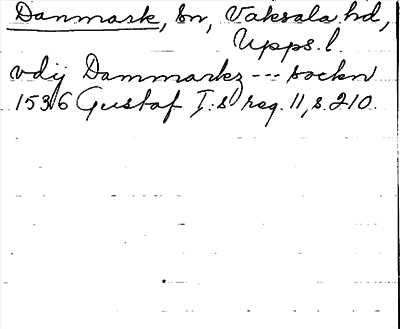 Danmark, sn, Vaksala hd,
Upps. l.
vdij Dammarkz --- sockn
1536 Gustaf I:s reg. 11, s. 210.